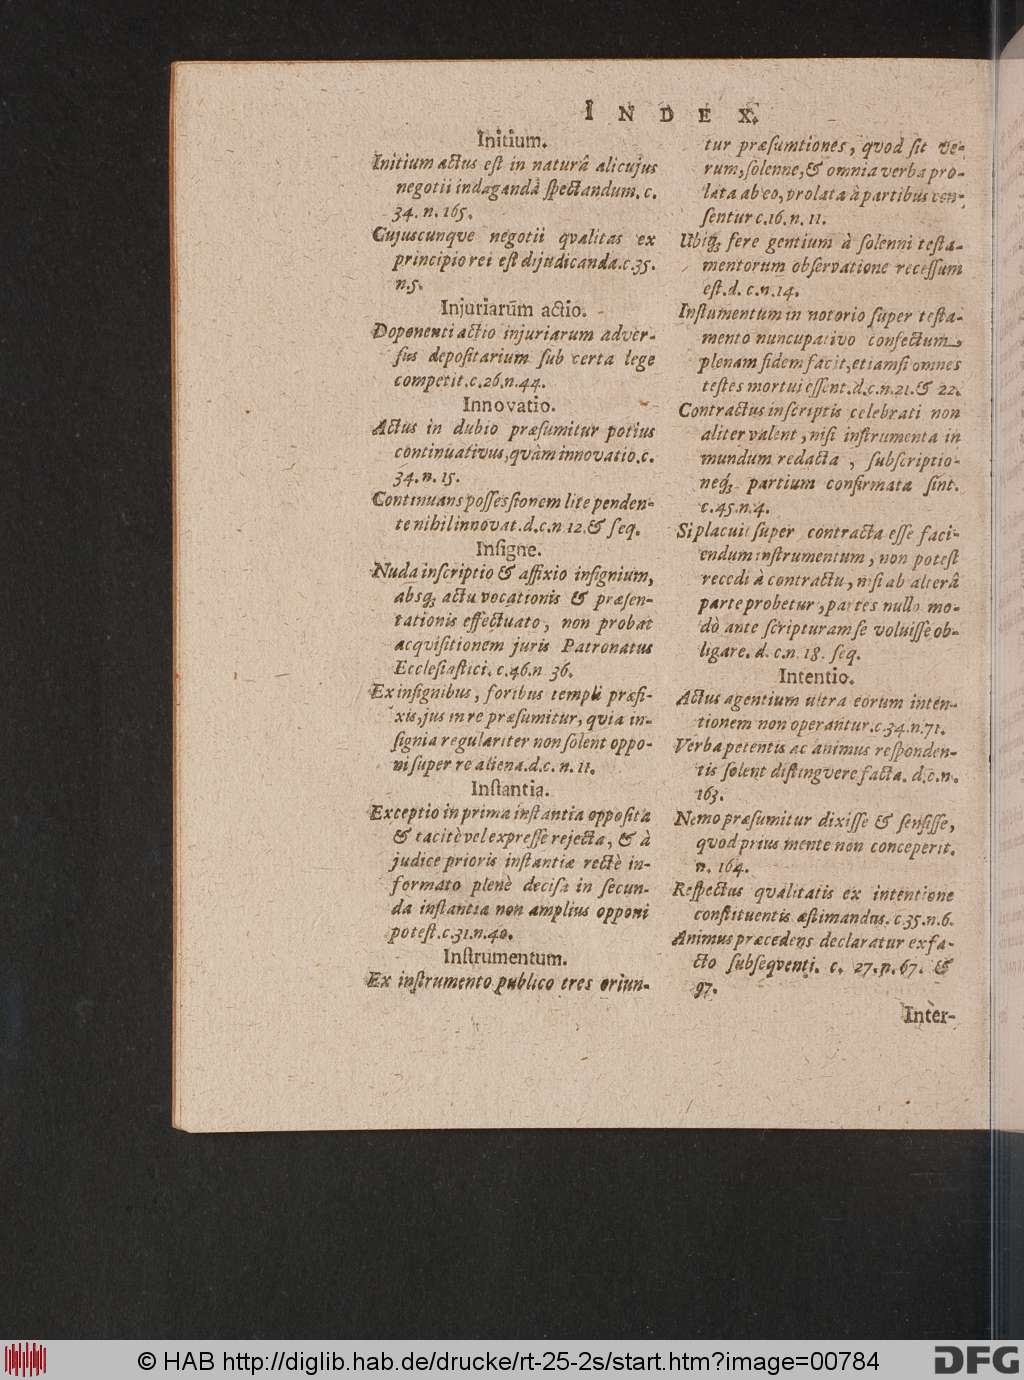 INDEX.
Initium.
Initium actus est in naturâ alicujus
negotii indagandâ spectandum. c.
34. n. 165.
Cujuscunqve negotii qvalitas ex
principio rei est dijudicanda. c. 35.
n. 5.
Injuriarum actio.
Doponenti actio injuriarum adver-
sus depositarium sub certa lege
competit. c. 26. n. 44.
Innovatio.
Actus in dubio præsumitur potius
continuativus, qvàm innovatio. c.
34. n. 15.
Continuans possessionem lite penden-
te nihil innovat. d. c. n 12. & seq.
Insigne.
Nuda inscriptio & affixio insignium,
absq; actu vocationis & præsen-
tationis effectuato, non probat
acqvisitionem juris Patronatus
Ecclesiastici. c. 46. n 36.
Ex insignibus, foribus templi præfi-
xis, jus in re præsumitur, qvia in-
signia regulariter non solent oppo-
ni super re aliena. d. c. n. 11.
Instantia.
Exceptio in prima instantia opposita
& tacitè vel expresse rejecta, & à
judice prioris instantiæ rectè in-
formato plenè decisa in secun-
da instantia non amplius opponi
potest. c. 31. n. 40.
Instrumentum.
Ex instrumento publico tres oriun-
tur præsumtiones, qvod sit ve-
rum, solenne, & omnia verba pro-
lata ab eo, prolata à partibus cen-
sentur c. 16. n. 11.
Ubiq; fere gentium à solenni testa-
mentorum observatione recessum
est. d. c. n. 14.
Instumentum in notorio super testa-
mento nuncupativo confectum,
plenam fidem facit, etiamsi omnes
testes mortui essent. d. c. n. 21. & 22.
Contractus in scriptis celebrati non
aliter valent, nisi instrumenta in
mundum redacta, subscriptio-
neq; partium confirmata sint.
c. 45. n. 4.
Si placuit super contracta esse faci-
endum instrumentum, non potest
recedi à contractu, nisi ab alterâ
parte probetur, partes nullo mo-
dò ante scripturam se voluisse ob-
ligare. d. c. n. 18. seq.
Intentio.
Actus agentium ultra eorum inten-
tionem non operantur. c. 34. n. 71.
Verba petentis ac animus responden-
tis solent distingvere facta. d. c. n.
163.
Nemo præsumitur dixisse & sensisse,
qvod prius mente non conceperit.
n. 164.
Respectus qvalitatis ex intentione
constituentis æstimandus. c. 35. n. 6.
Animus præcedens declaratur ex fa-
cto subseqventi. c. 27. n. 67. &
97.
Inter-
© HAB http://diglib.hab.de/drucke/rt-25-2s/start.htm?image=00784
DFG